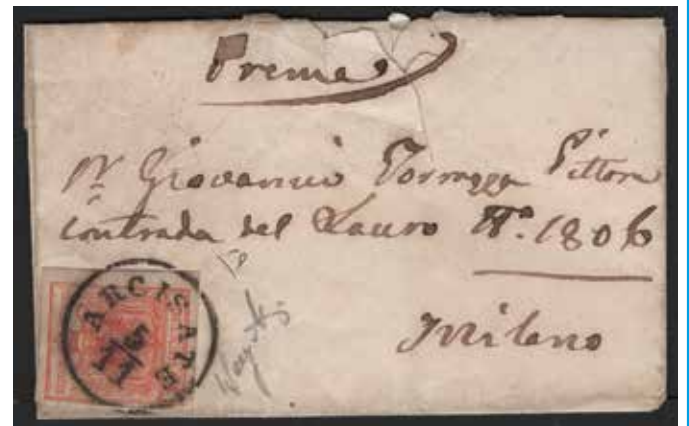 Preme
Sr. Giovanni Pittore
Contrada del Lauro N.º 1806
Milano
ARCISATE
5/11